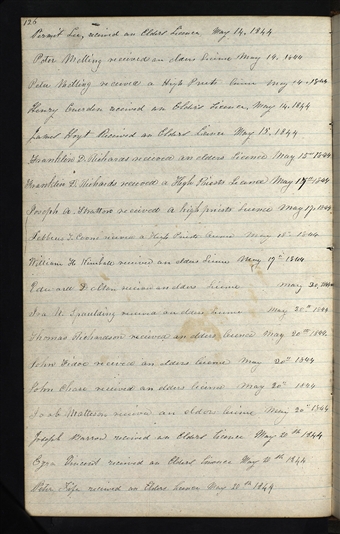 126
Permit Lee, received an Elders Licence May 14, 1844
Peter Melling received an elders licence May 14, 1844
Peter Melling received a High Priests licence May 14 1844
Henry Cuerden received an Elders Licence, May 14. 1844
James Hoyt Received an Elders Licence May 18, 1844
Franklin D. Richards received an elders Licence May 15th 1844
Franklin D. Richards received a High Priests Licence May 17th 1844
Joseph A. Stratton received a high priests licence May 17. 1844
received a High Priests licence May 18th 1844
William H. Kimball received an elders Licence May 19th 1844
received an elders Licence May 20, 1844
Ira N. Spaulding received an elders licence May 20th 1844
Thomas Richardson received an elders licence May 20th 1844
John received an elders licence May 20th 1844
John Chase received an elders licence May 20th 1844
Jacob Matheson received an elders licence May 20th 1844
Joseph Barrow received an Elders Licence May 20th 1844
Ezra Vincent received an Elders Licence May 21th 1844
Peter received an Elders Licence May 20th 1844